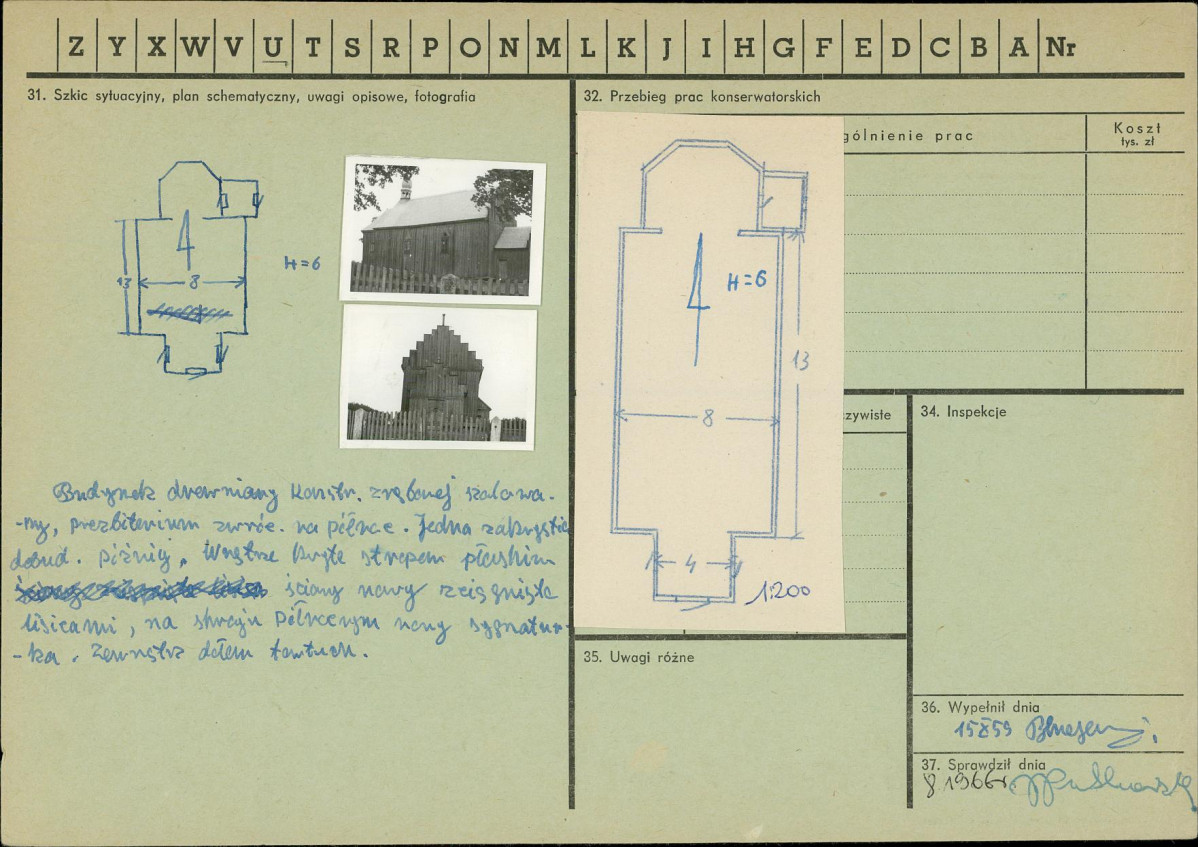 Z Y X W V U T S R P O N M L K J I H G F E D C B A Nr
31. Szkic sytuacyjny, plan schematyczny, uwagi opisowe, fotografia
13
8
H=6
Budynek drewniany konstr. zrębowej szalowa-
-ny, prezbiterium zwróc. na północ. Jedna zakrystia
dobud. później. Wnętrze kryte stropem płaskim
ściany nawy ściągnięte
lisicami, na skraju północnym nawy sygnatur-
-ka. Zewnątrz dołem fartuch.
32. Przebieg prac konserwatorskich
gólnienie prac
Koszt
tys. zł
H=6
13
8
4
1:200
zywiste
34. Inspekcje
35. Uwagi różne
36. Wypełnił dnia
15 X 59
37. Sprawdził dnia
8 1966r